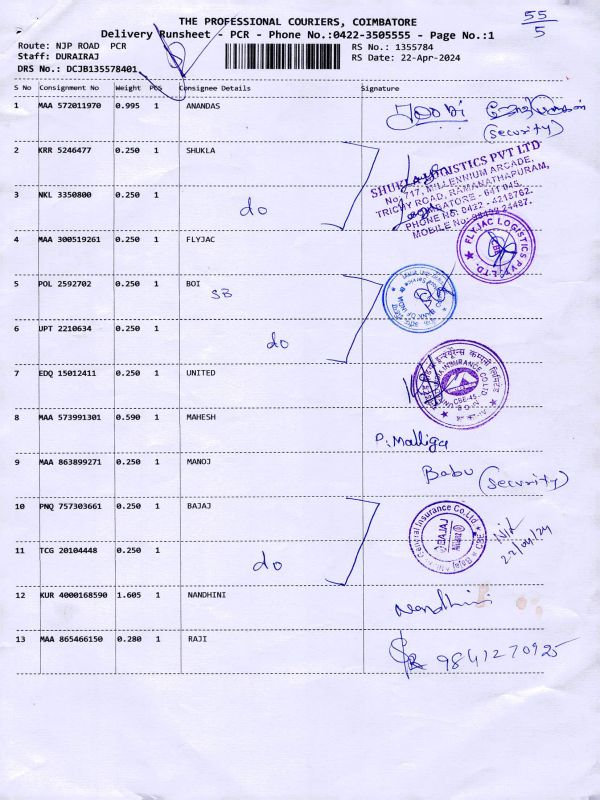 THE PROFESSIONAL COURIERS, COIMBATORE
55
5
Delivery Runsheet - PCR - Phone No.:0422-3505555 - Page No.:1
Route: NJP ROAD PCR
RS No.: 1355784
Staff: DURAIRAJ
RS Date: 22-Apr-2024
DRS No.: DCJB135578401
S No Consignment No Weight PCS Consignee Details Signature
1 MAA 572011970 0.995 1 ANANDAS
(security)
2 KRR 5246477 0.250 1 SHUKLA
SHUKLA LOGISTICS PVT LTD
No. 717, MILLENNIUM ARCADE,
TRICHY ROAD, RAMANATHAPURAM,
COIMBATORE - 641 045.
PHONE NO: 0422 - 4218762.
3 NKL 3350800 0.250 1
do
4 MAA 300519261 0.250 1 FLYJAC
FLYJAC LOGISTICS PVT. LTD.
5 POL 2592702 0.250 1 BOI
SB
6 UPT 2210634 0.250 1
do
7 EDQ 15012411 0.250 1 UNITED
8 MAA 573991301 0.590 1 MAHESH
P. Malliga
9 MAA 863899271 0.250 1 MANOJ
Babu (security)
10 PNQ 757303661 0.250 1 BAJAJ
General Insurance Co. Ltd
BAJAJ
22/04/24
11 TCG 20104448 0.250 1
do
12 KUR 4000168590 1.605 1 NANDHINI
Nandhini
13 MAA 865466150 0.280 1 RAJI
9841270925